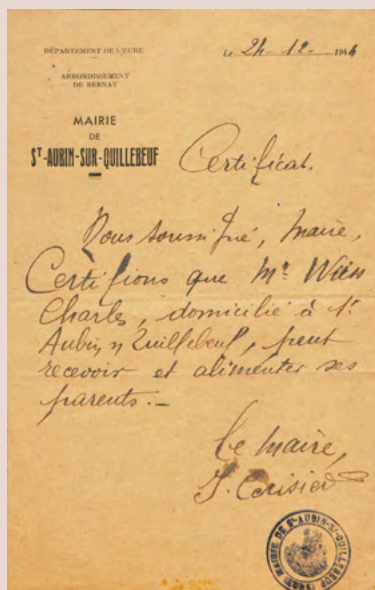 DÉPARTEMENT DE L'EURE
ARRONDISSEMENT
DE BERNAY
MAIRIE
DE
ST-AUBIN-SUR-QUILLEBEUF
Le 24-12- 1944
Certificat.
Nous soussigné, Maire,
Certifions que Mr
Charles, domicilié à St
Aubin s/ Quillebeuf, peut
recevoir et alimenter ses
parents.-
Le Maire,
MAIRIE DE ST-AUBIN-S/-QUILLEBEUF